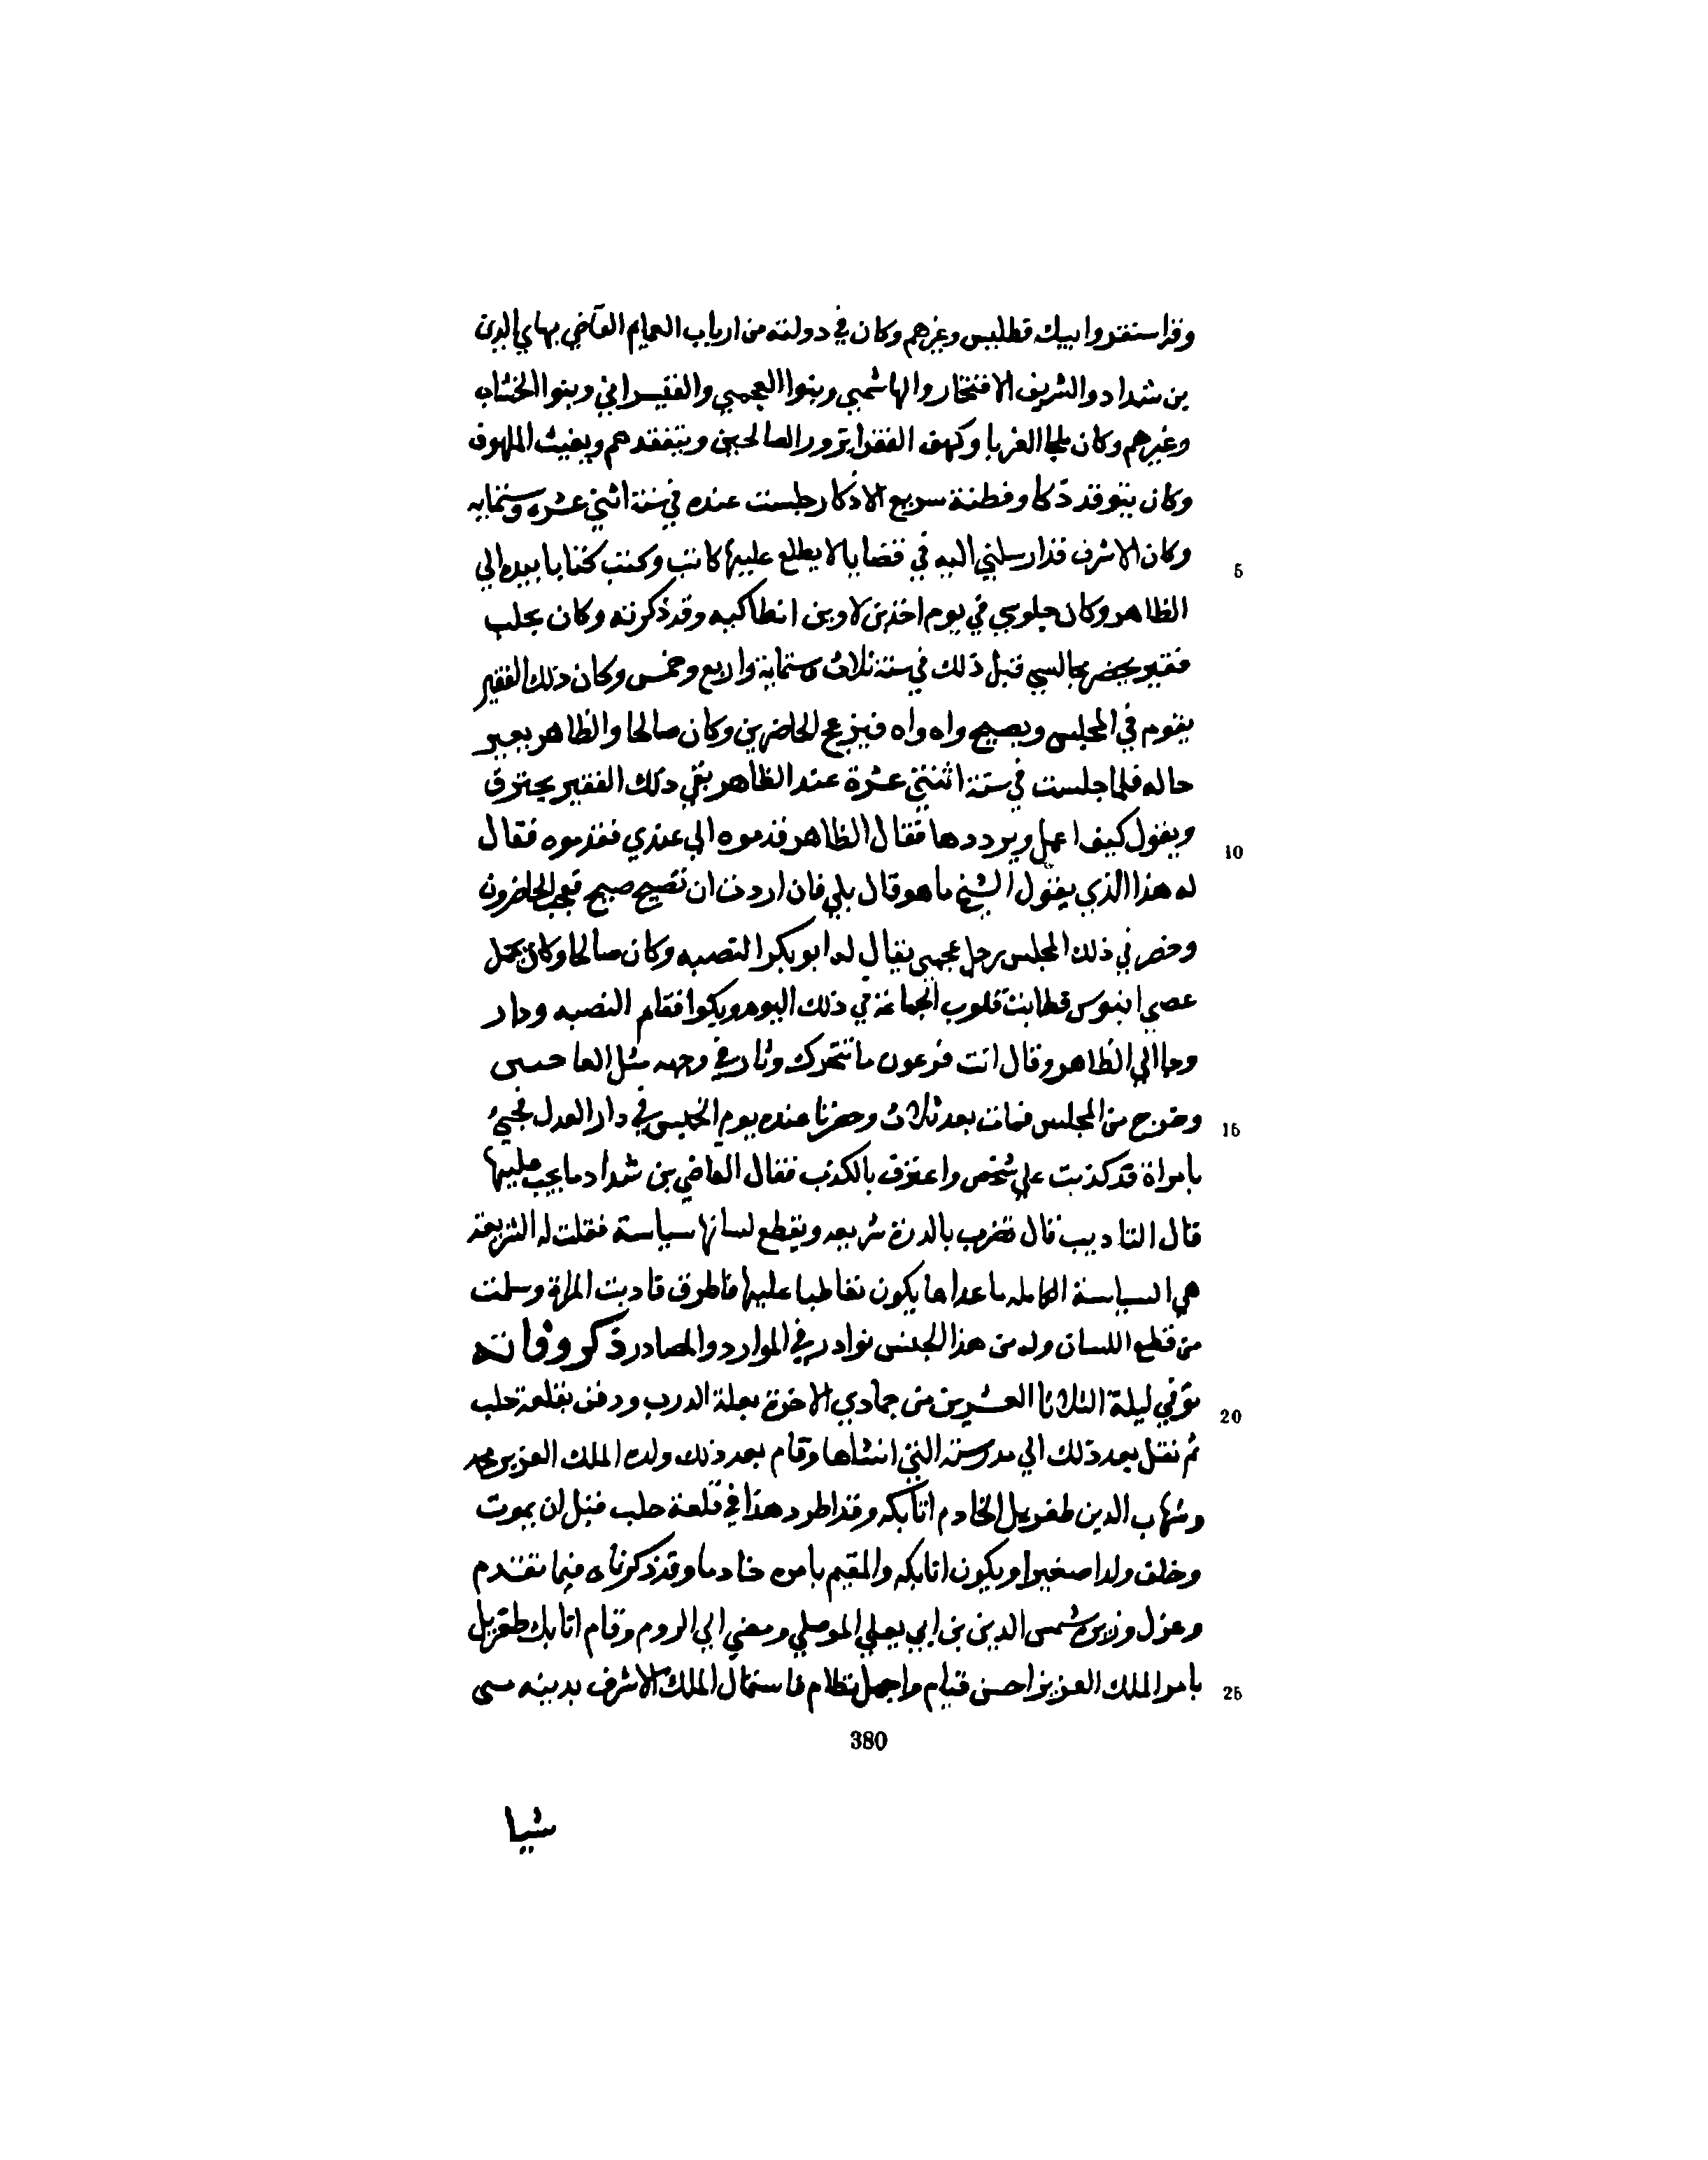 وقراسنقر وايبك قطليس وغيرهم وكان في دولته من ارباب العمايم القاضي بهاي الدين
بن شداد والشريف الافتخار والهاشمي وبنوا العجمي والقيسراني وبنوا الخشاب
وغيرهم وكان ملجا الغربا وكهف الفقرا يزور الصالحين ويتفقدهم ويغيث الملهوف
وكان يتوقد ذكا وفطنة سريع الادكار جلست عنده في سنة اثني عشره وستمايه
وكان الاشرف قد ارسلني اليه في قضايا لا يطلع عليها كاتب وكتب كتابا بيده الي
5
الظاهر وكان جلوسي في يوم اخذ بن لاون انطاكيه وقد ذكرته وكان بحلب
فقير يحضر مجالسي قبل ذلك في سنة ثلاث وستماية واربع وخمس وكان ذلك الفقير
يقوم في المجلس ويصيح واه واه فيزعج الحاضرين وكان صالحا والظاهر يعبر
حاله فلما جلست في سنة اثنتي عشرة عند الظاهر بقي ذلك الفقير يحترق
ويقول كيف اعمل ويرددها فقال الظاهر قدموه الي عندي فقدموه فقال
10
له هذا الذي يقول الشيخ ما هو قال بلي فان اردت ان تصيح صيح فعجب الحاضرون
وحضر في ذلك المجلس رجل عجمي يقال له ابو بكر النصبه وكان صالحا وكان يحمل
عصي ابنوس فطابت قلوب الجماعة في ذلك اليوم وبكوا فقام النصبه ودار
وجا الي الظاهر وقال انت فرعون ما تتحرك وثار في وجهه مثل العا حسى
وخرج من المجلس فمات بعد ثلاث وحضرنا عنده يوم الخميس في دار العدل فجيئ
15
بامراة قد كذبت علي شخص واعترف بالكذب فقال القاضي بن شداد ما يجب عليها
قال التاديب قال تضرب بالدرة شريعه ويقطع لسانها سياسة فقلت له الشريعة
هي السياسة الكامله ما عداها يكون تعاطيا عليها فاطرق فادبت المراة وسلمت
من قطع اللسان وله من هذا الجنس نوادر في الموارد والمصادر ذكر وفاته
توفي ليلة الثلاثا العشرين من جمادي الاخرة بعلة الدرب ودفن بقلعة حلب
20
ثم نقل بعد ذلك الي مدرسته التي انشاها وقام بعد ذلك ولده الملك العزيز محمد
وشهاب الدين طغريل الخادم اتابكه وقد اطرد هذا في قلعة حلب قبل ان يموت
وخلف ولدا صغيرا ويكون اتابكه والمقيم بامره خادما وقد ذكرناه فيما تقدم
وعزل وزيره شمس الدين بن ابي يعلي الموصلي ومضي الي الروم وقام اتابك طغريل
بامر الملك العزيز احسن قيام واجمل نظام فاستمال الملك الاشرف بدينه حسى
25
380
شيا